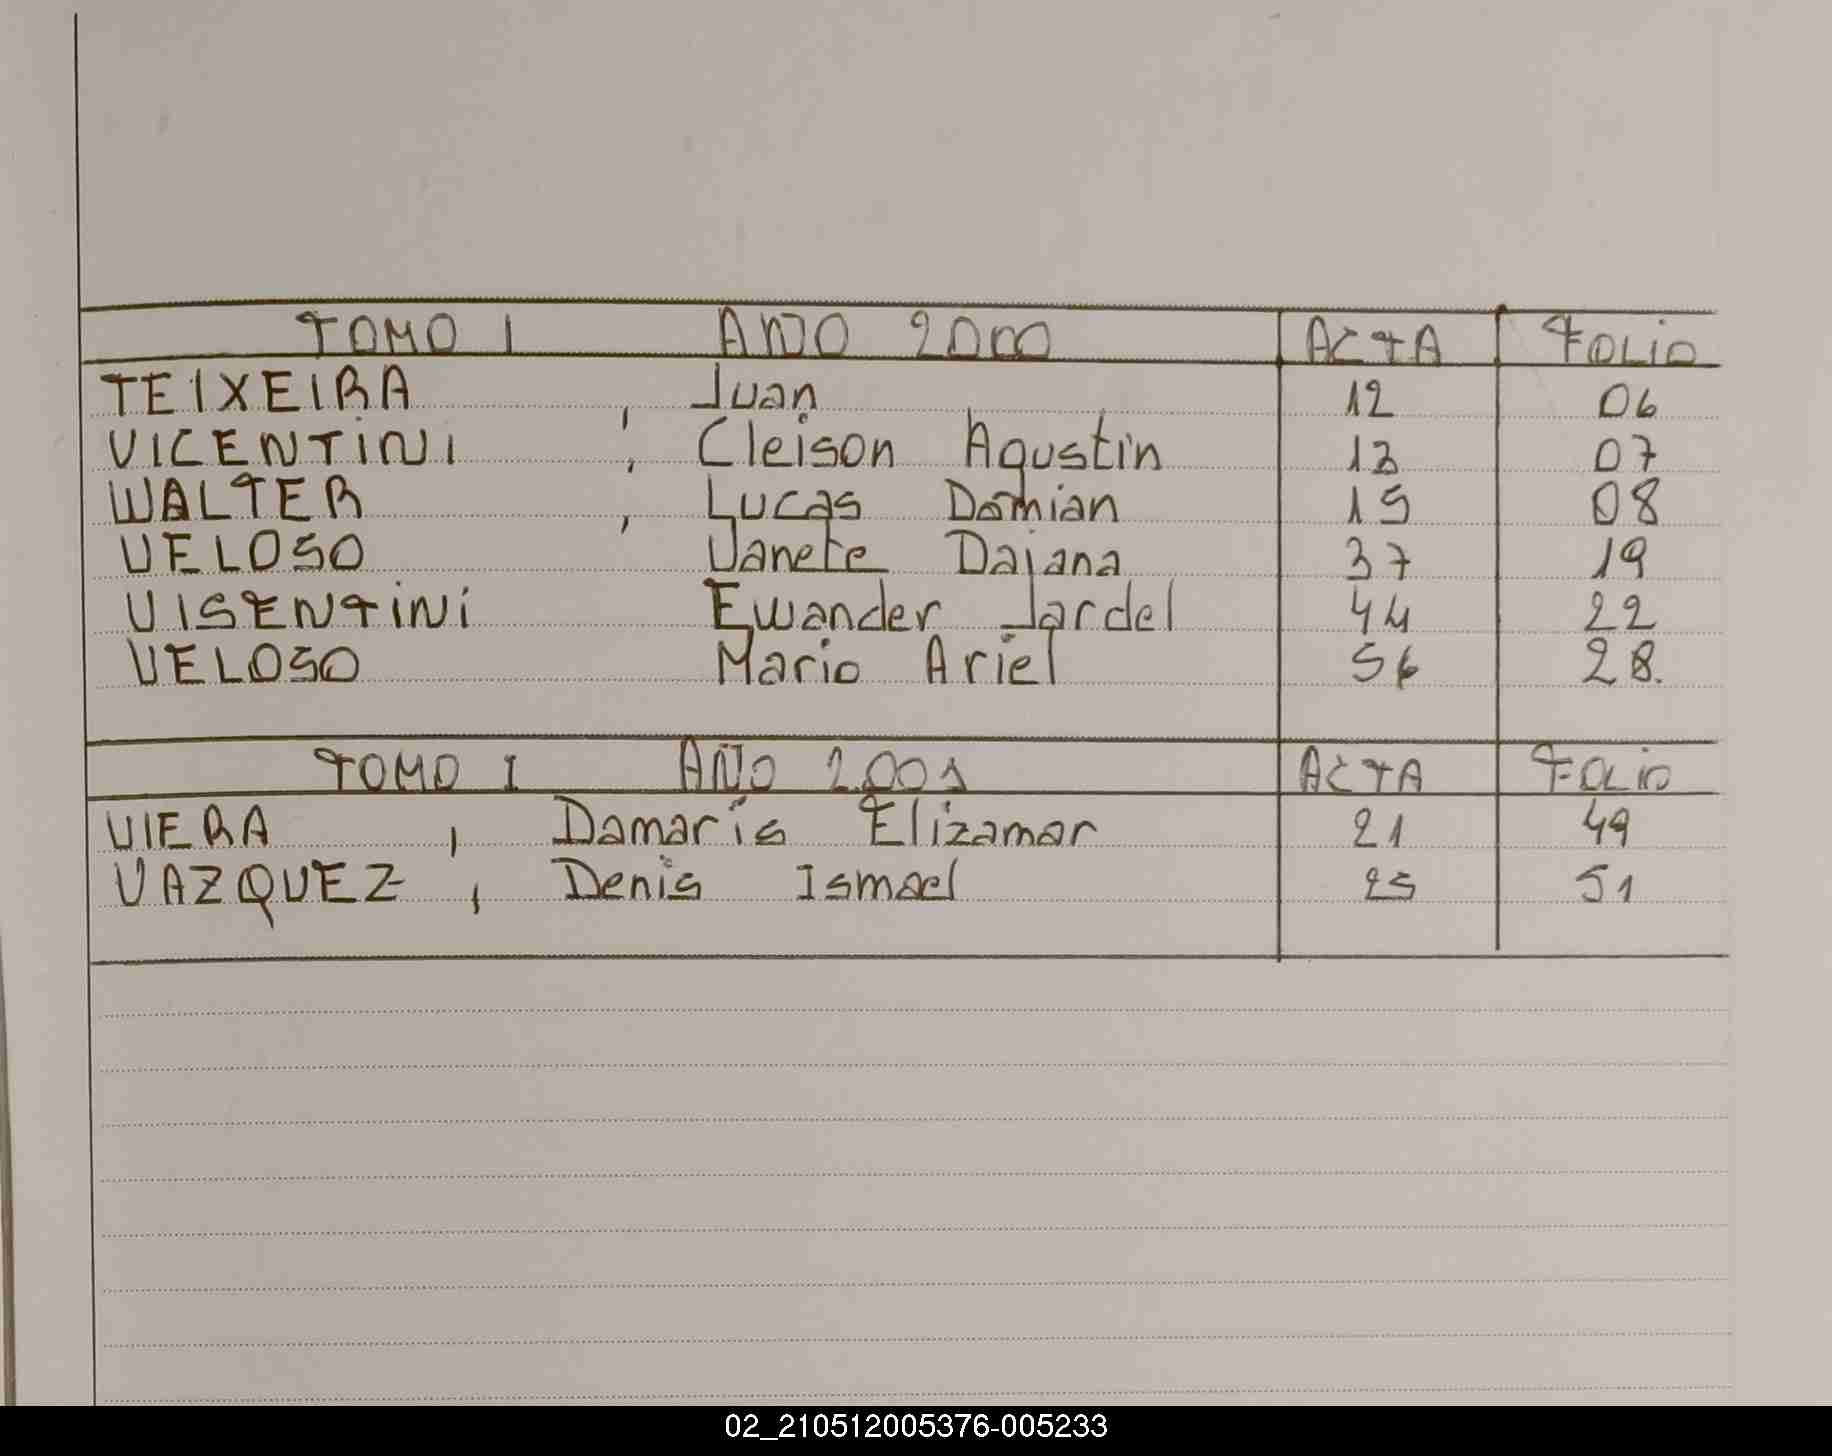 TOMO I AÑO 2000 ACTA FOLIO
TEIXEIRA , Juan 12 06
VICENTINI , Cleison Agustin 13 07
WALTER , Lucas Damian 15 08
VELOSO Vanete Daiana 37 19
VISENTINI Ewander Jardel 44 22
VELOSO Mario Ariel 56 28.
TOMO I AÑO 2.001 ACTA FOLIO
VIERA , Damaris Elizamar 21 49
VAZQUEZ , Denis Ismael 25 51
02_210512005376-005233